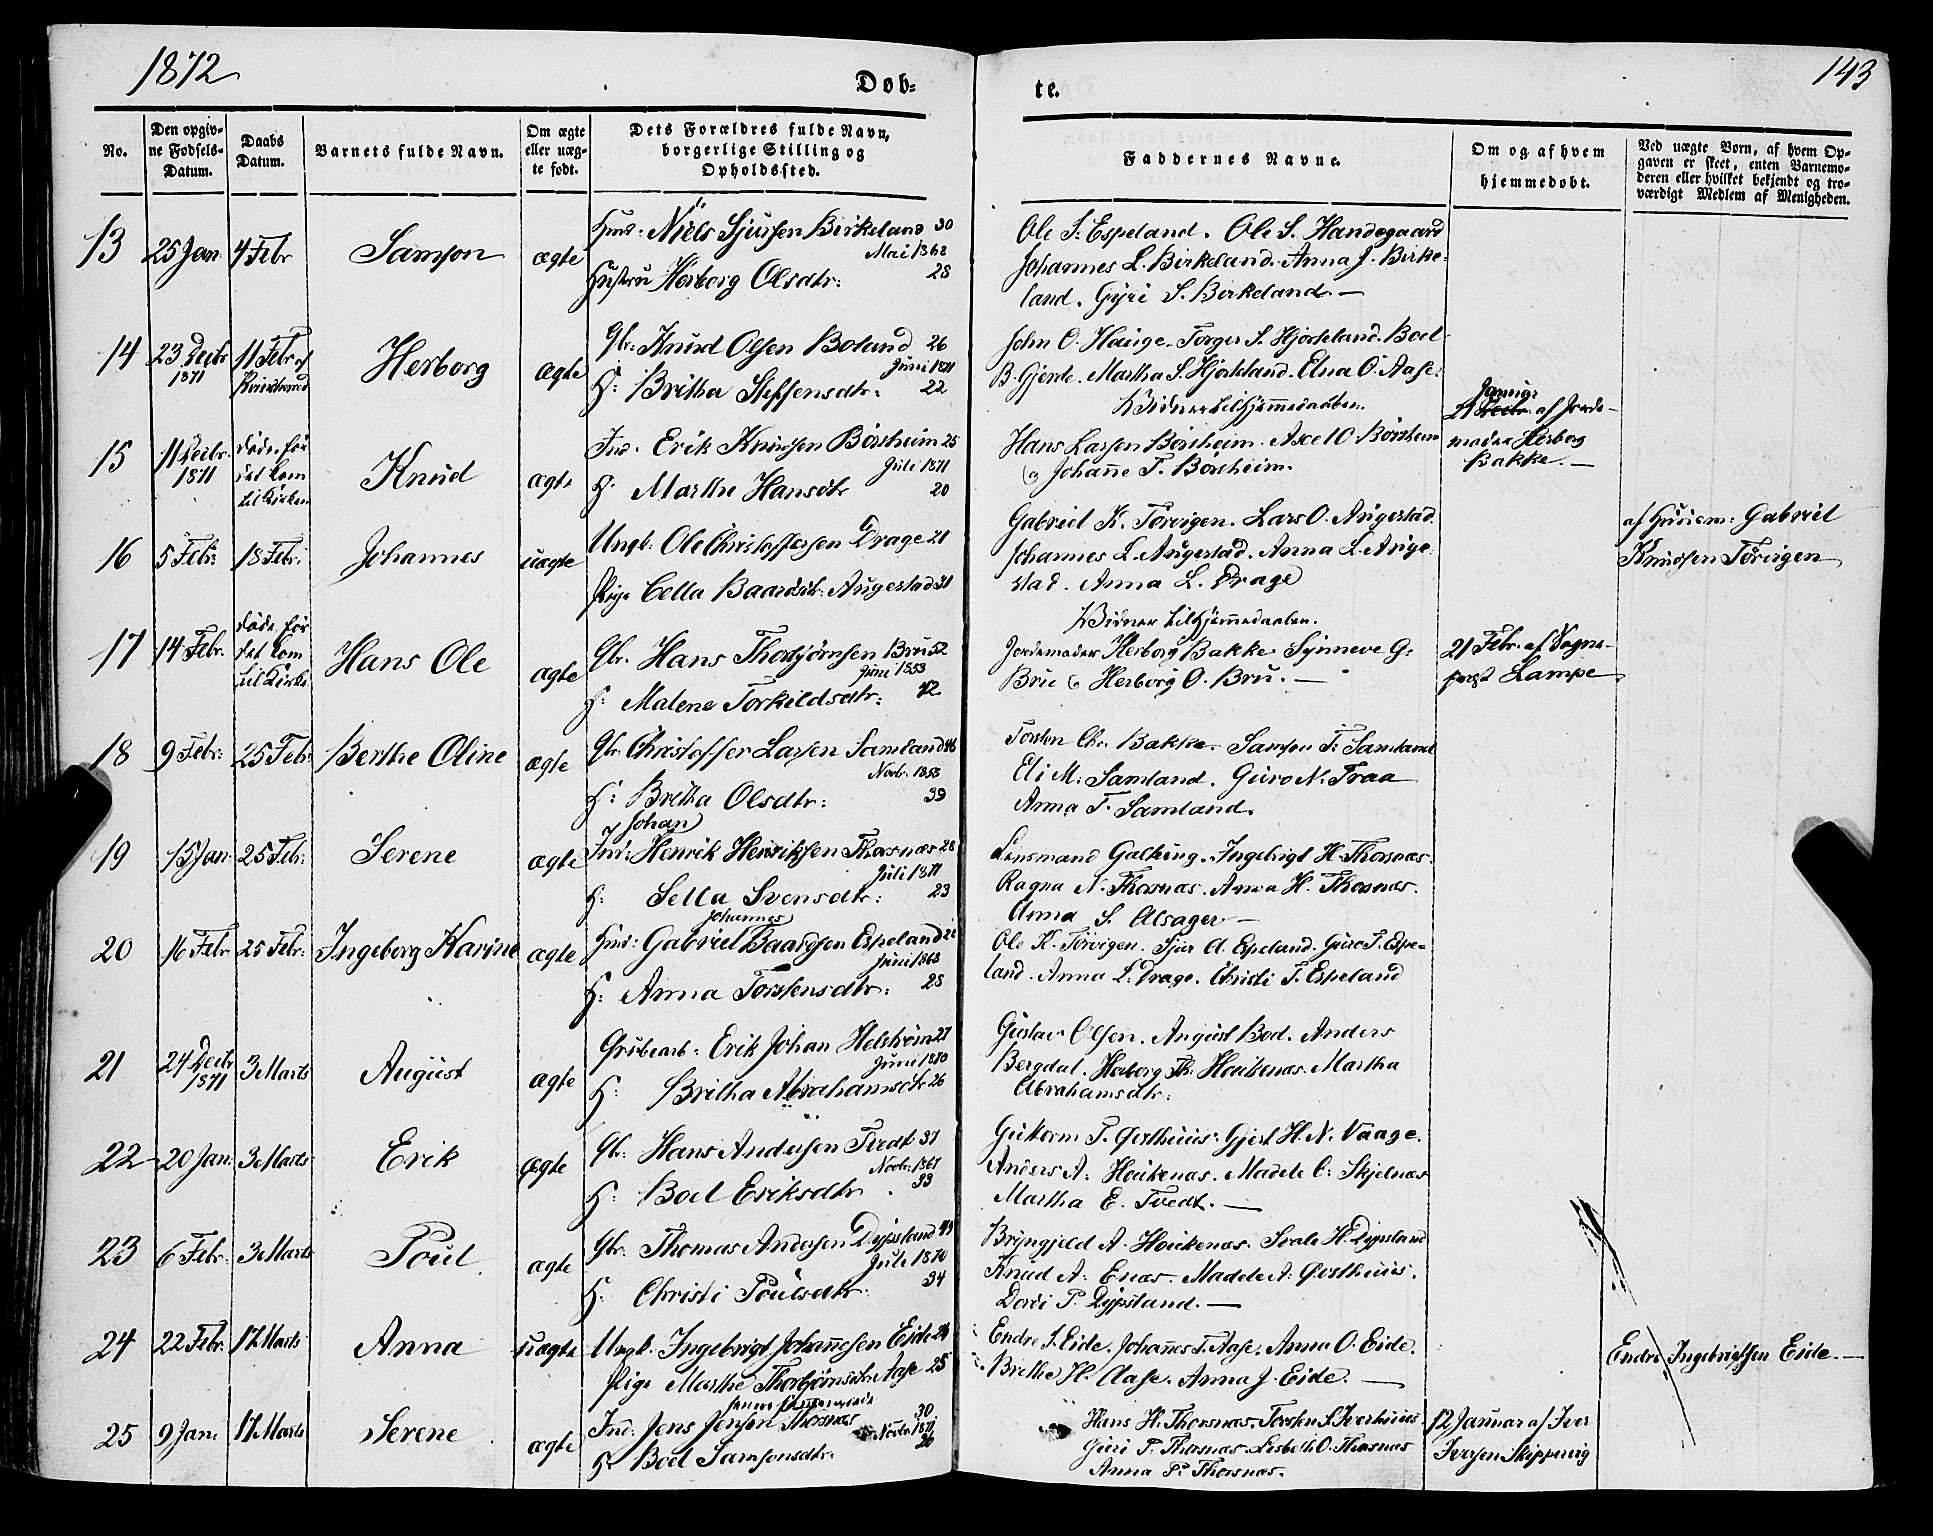 1872
143
Døb-
te.
No.
Den opgiv-
ne Fødsels-
Datum.
Daabs
Datum.
Barnets fulde Navn.
Om ægte
eller uæg-
te født.
Dets Forældres fulde Navn,
borgerlige Stilling og
Opholdssted.
Faddernes Navne.
Om og af hvem
hjemmedøbt.
Ved uægte Børn, af hvem Op-
gaven er skeet, enten Barnemo-
deren eller hvilket bekjendt og tro-
værdigt Medlem af Menigheden.
13
25 Jan:
4 Febr
Samson
ægte
Huus: Niels Sjursen Birkeland 30
Mai 1868
Hustru Herborg Olsdtr: 28
Ole S. Espeland. Ole S. Handegaard
Johannes L. Birkeland. Anna J. Birke-
land. Gyri S. Birkeland. —
14
23 Decbr
1871
11 Febr af
Herborg
ægte
Gbr: Knud Olsen Boland 26
Juni 1871
H: Britha Steffensdtr: 22
John O. Hauge. Torger S. Hjorteland. Boel
B. Gjerde. Martha S. Hjorteland. Elna O. Aase.
15
11 Decbr
1871
døde før
det kom
til Kirken
Knud
ægte
Ind: Erik Knudsen Børsheim 25
Juli 1871
H: Marthe Hansdtr 20
Vidner til Hjemmedaaben.
Hans Larsen Børsheim. Axel O Børsheim
& Johanne T. Børsheim.
21 af Jorde-
moder Herborg
Bakke. —
16
5 Febr:
18 Febr:
Johannes
uægte
Ungk: Ole Christoffersen Drage 21
Pige Cella Baardsdtr: Augestad 31
Gabriel K. Tørvigen. Lars O. Augestad.
Johannes L. Augestad. Anna L. Auge-
stad. Anna L. Drage
af Huusm: Gabriel
Knudsen Tørvigen
17
14 Febr.
døde før
det kom
til Kirke
Hans Ole
ægte
Gbr. Hans Thorbjørnsen Bru 52
Juni 1853
H: Malene Torkildsdtr: 42
Vidner til Hjemmedaaben.
Jordemoder Herborg Bakke. Synneve G.
Bru & Herborg O. Bru. —
21 Febr. af Sogne-
præst Lampe
18
9 Febr:
25 Febr:
Berthe Oline
ægte
Gbr. Christoffer Larsen Samland 46
Novbr. 1853
H: Britha Olsdtr: 39
Torsten Chr. Bakke. Samson T: Samland
Eli M: Samland. Guro N. Traa
Anna T. Samland.
19
15 Jan:
25 Febr:
Serene
ægte
Johan
Ind: Henrik Henriksen Thorsnæs 28
Juli 1871
H: Sella Svensdtr: 23
Lensmand Galtung. Ingebrigt H. Thorsnæs.
Ragna N. Thorsnæs. Anna H. Thorsnæs.
Anna S. Alsager —
20
16 Febr
25 Febr:
Ingeborg Karine
ægte
Johannes
Huus: Gabriel Baardsen Espeland
Juni 1863
H: Anna Torstensdtr: 28
Ole K. Tørvigen. Sjur A. Espeland. Guro T. Espe-
land. Anna L. Drage. Christi T. Espeland
21
24 Decbr
1871
3 Marts
August
ægte
Grubearb: Erik Johan Helstrøm 27
Juni 1870
H: Britha Abrahamsdtr 26
Gustav Olsen. August Bod. Anders
Bergdal. Herborg Th. Haukenæs. Martha
Abrahamsdtr:
22
20 Jan:
3 Marts
Erik
ægte
Gbr: Hans Andersen Tvedt 37
Novbr. 1867
H: Boel Eriksdtr 33
Gutorm T. Østhuus. Gjert H. N. Vaage.
Anders A: Haukenæs. Madele C: Skjelnæs
Martha E. Tvedt. —
23
6 Febr:
3 Marts
Poul
ægte
Gbr: Thomas Andersen Dypsland 43
Juli 1870
H: Christi Poulsdtr: 34
Bryngjeld A. Haukenæs. Svale H. Dypsland
Knud A: Enæs. Madele A: Østhuus.
Dordi P. Dypsland. —
24
22 Febr:
17 Marts
Anna
uægte
Ungk. Ingebrigt Johannesen Eide 24
Pige Marthe Thorbjørnsdtr Aase 25
Endre I. Eide. Johannes T. Aase. Anna O. Eide.
Brethe H. Aase. Anna J. Eide. —
Endre Ingebrigtsen Eide. —
25
9 Jan:
17 Marts
Serene
ægte
Ind: Jens Jensen Thorsnæs 30
Novbr. 1871
H: Boel Samsonsdtr: 20
Hans H. Thorsnæs. Torsten S. Iverhuus
Guri P. Thorsnæs. Lisbeth O. Thorsnæs
Anna P. Thorsnæs.
12 Januar af Iver
Iversen Skippervig